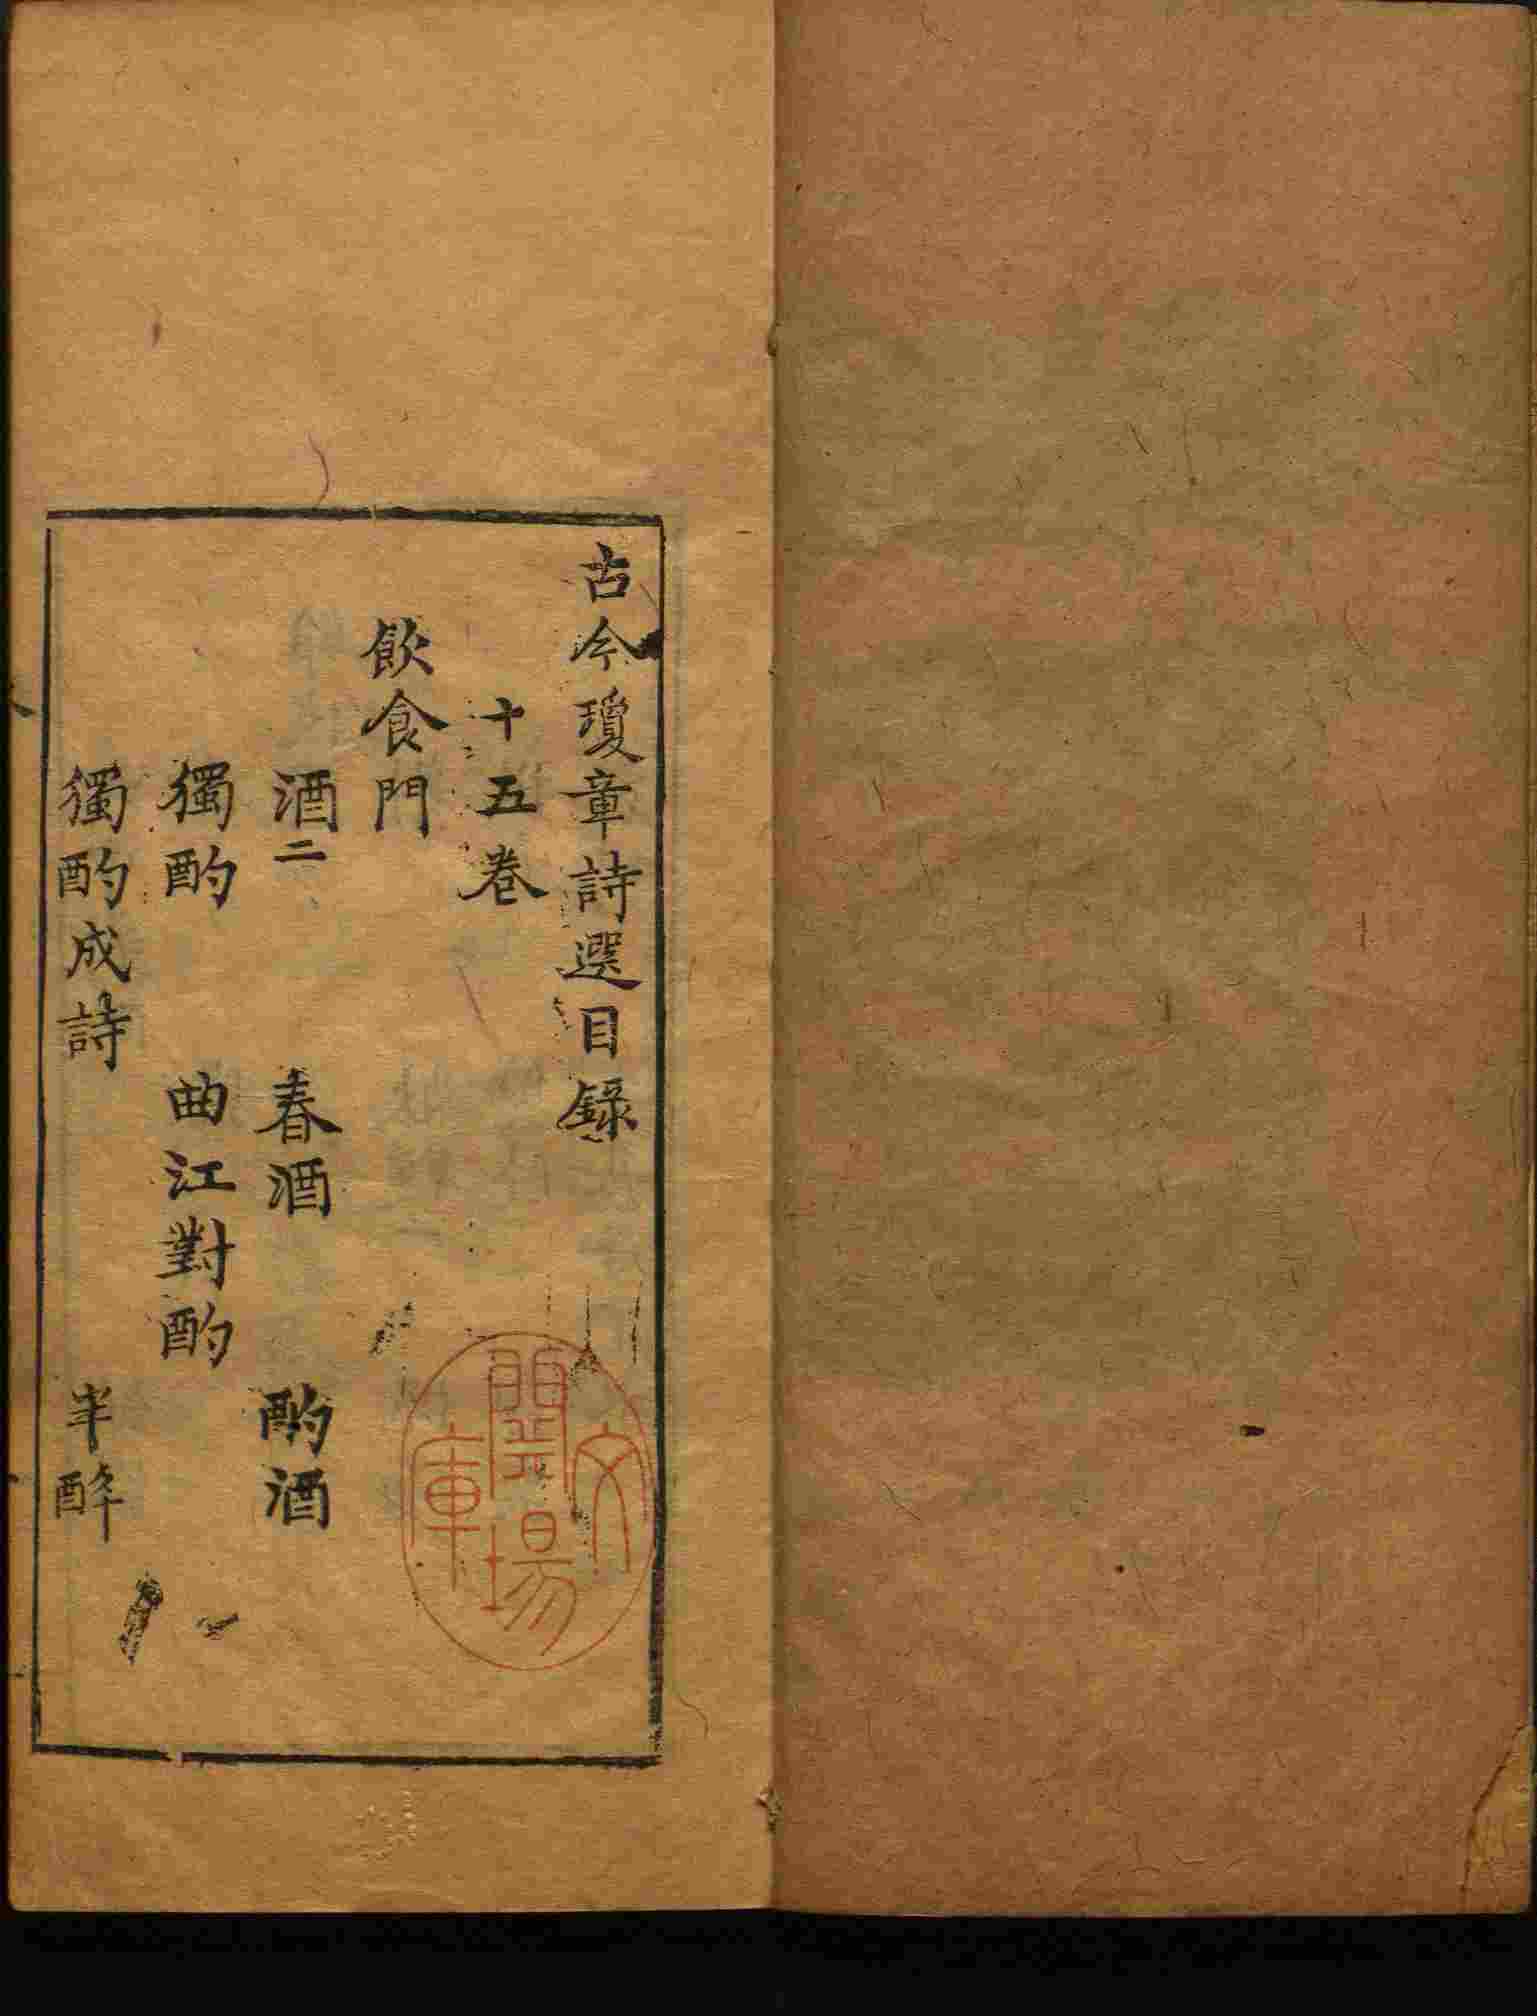 古今瓊章詩選目錄
十五卷
飲食門
酒二 春酒 酌酒
獨酌 曲江對酌
獨酌成詩 半醉
文開場庫